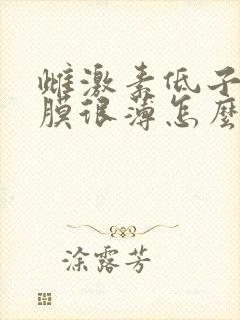 雌激素低子
膜很薄怎麽
涂露芳